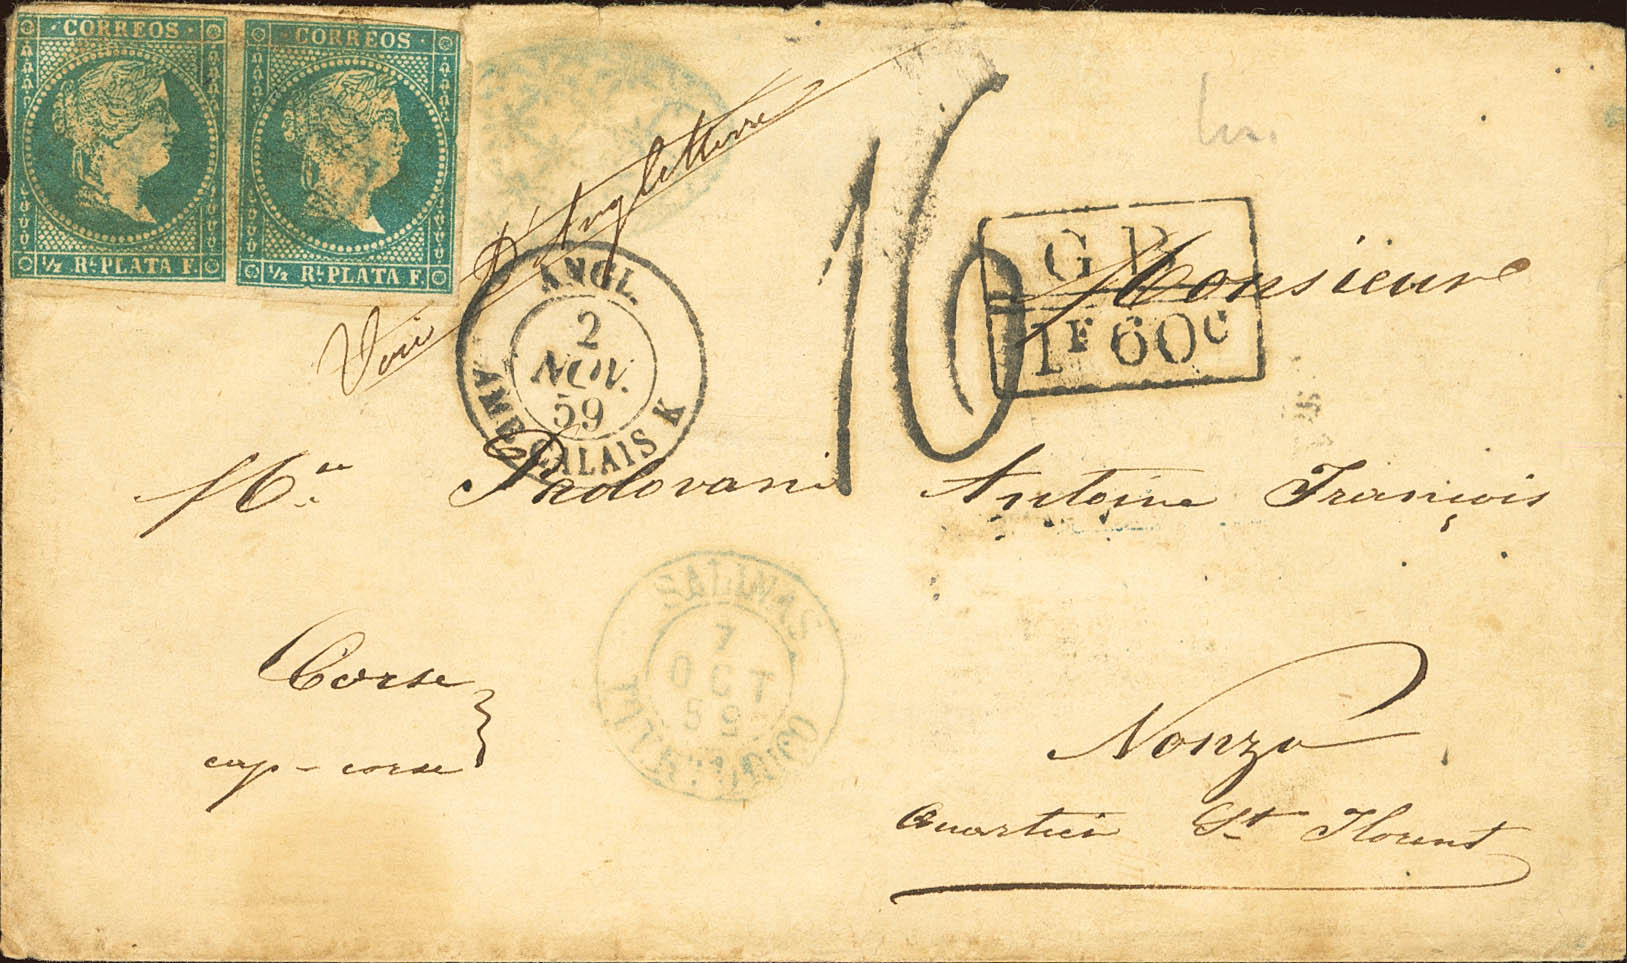 CORREOS
½ Rl. PLATA F.
CORREOS
½ Rl. PLATA F.
Voie d'Angletterre
ANGL.
2
NOV.
59
AMB. CALAIS K
16
G B
1F 60C
Monsieur
Mr. Padovani Antoine François
SALINAS
7
OCT
59
PUERTO-RICO
Corse
cap-corse
Nonza
Quartier St Florent